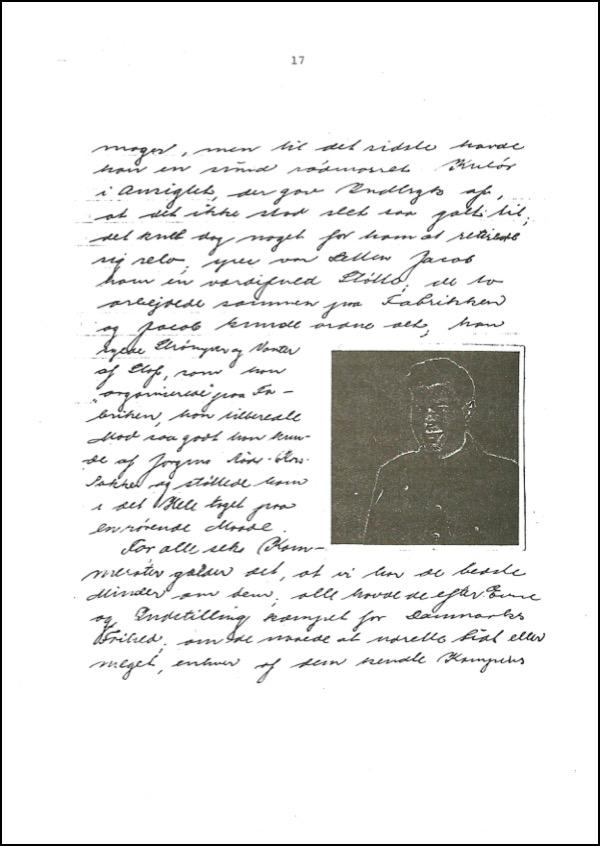 17
mager, men til det sidste havde
han en sund rødmosset Kulør
i Ansigtet, der gav Indtryk af,
at det ikke stod slet saa galt til;
det kneb dog noget for ham at
sig selv, her var Jacob
ham en værdifuld Støtte, de to
arbejdede sammen paa Fabrikken
og Jacob kunde ordne det, han
syede Strømper og Vanter
af Stof, som han
"organiserede" paa Fa-
briken, han tilberedte
Mad saa godt han kun-
de af Jørgens Røde-Kors-
Pakker og støttede ham
i det Hele taget paa
en rørende Maade.
For alle seks Kam-
merater gælder det, at vi har de bedste
Minder om dem, alle havde de efter Evne
og Indstilling kæmpet for Danmarks
Frihed, om de naaede at udrette lidt eller
meget, enhver af dem kendte Kampens